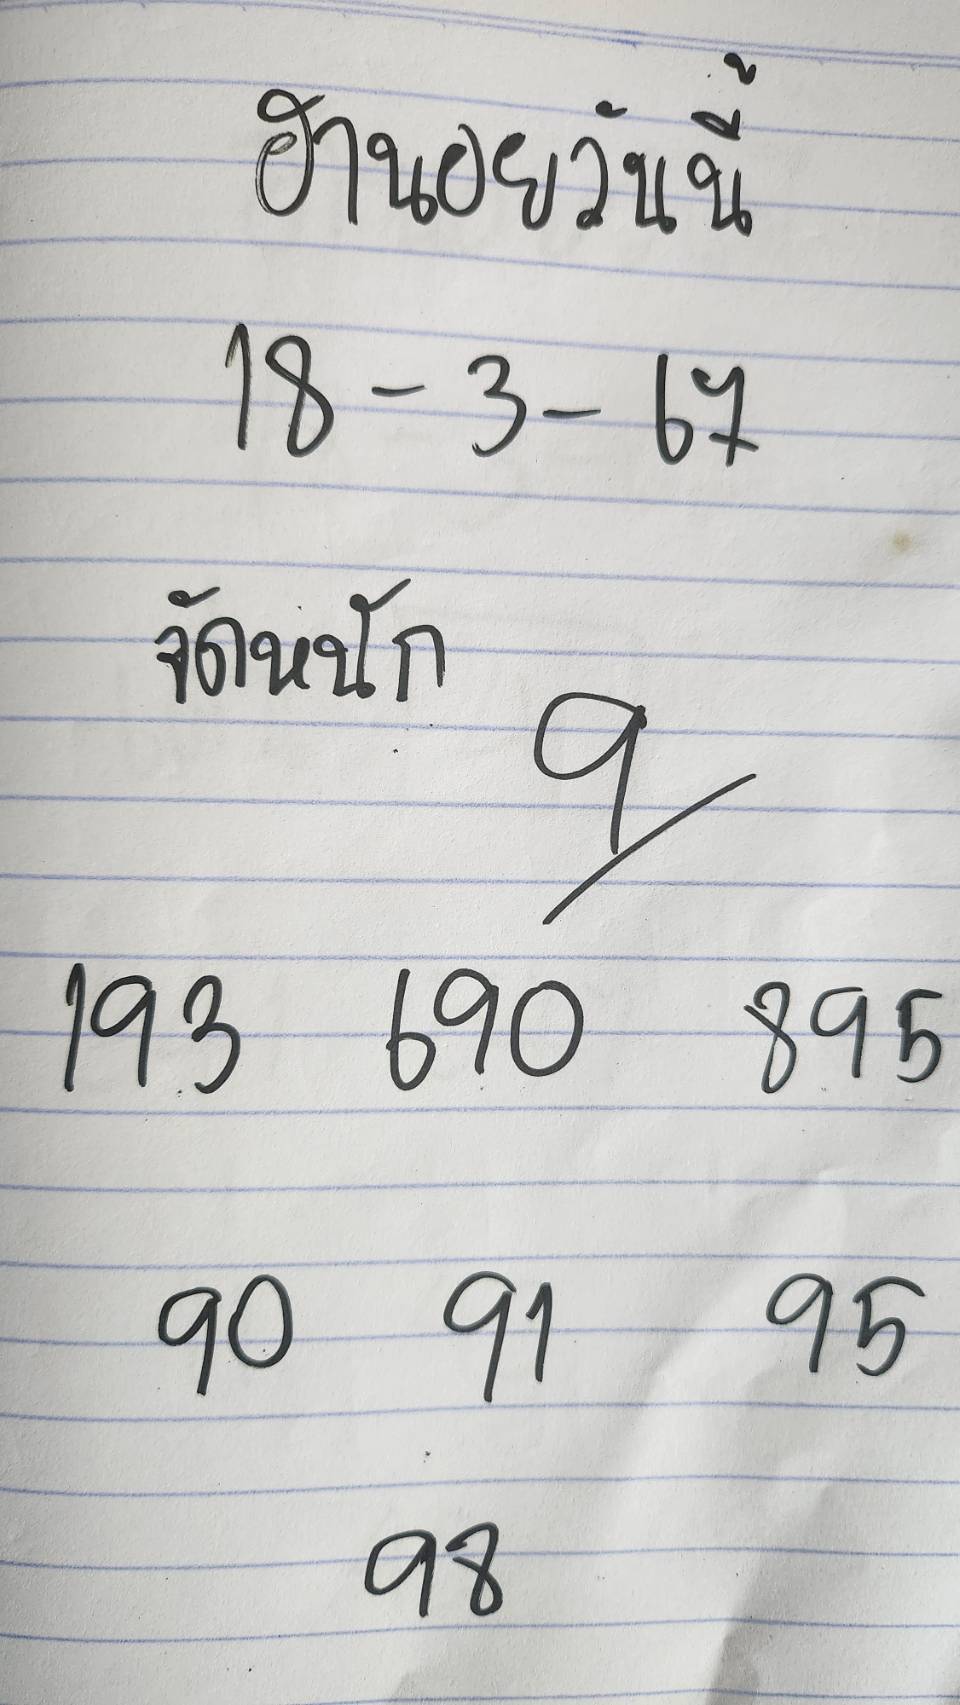 ฮานอยวันนี้
18 - 3 - 67
จัดหนัก
9
193 690 895
90 91 95
98